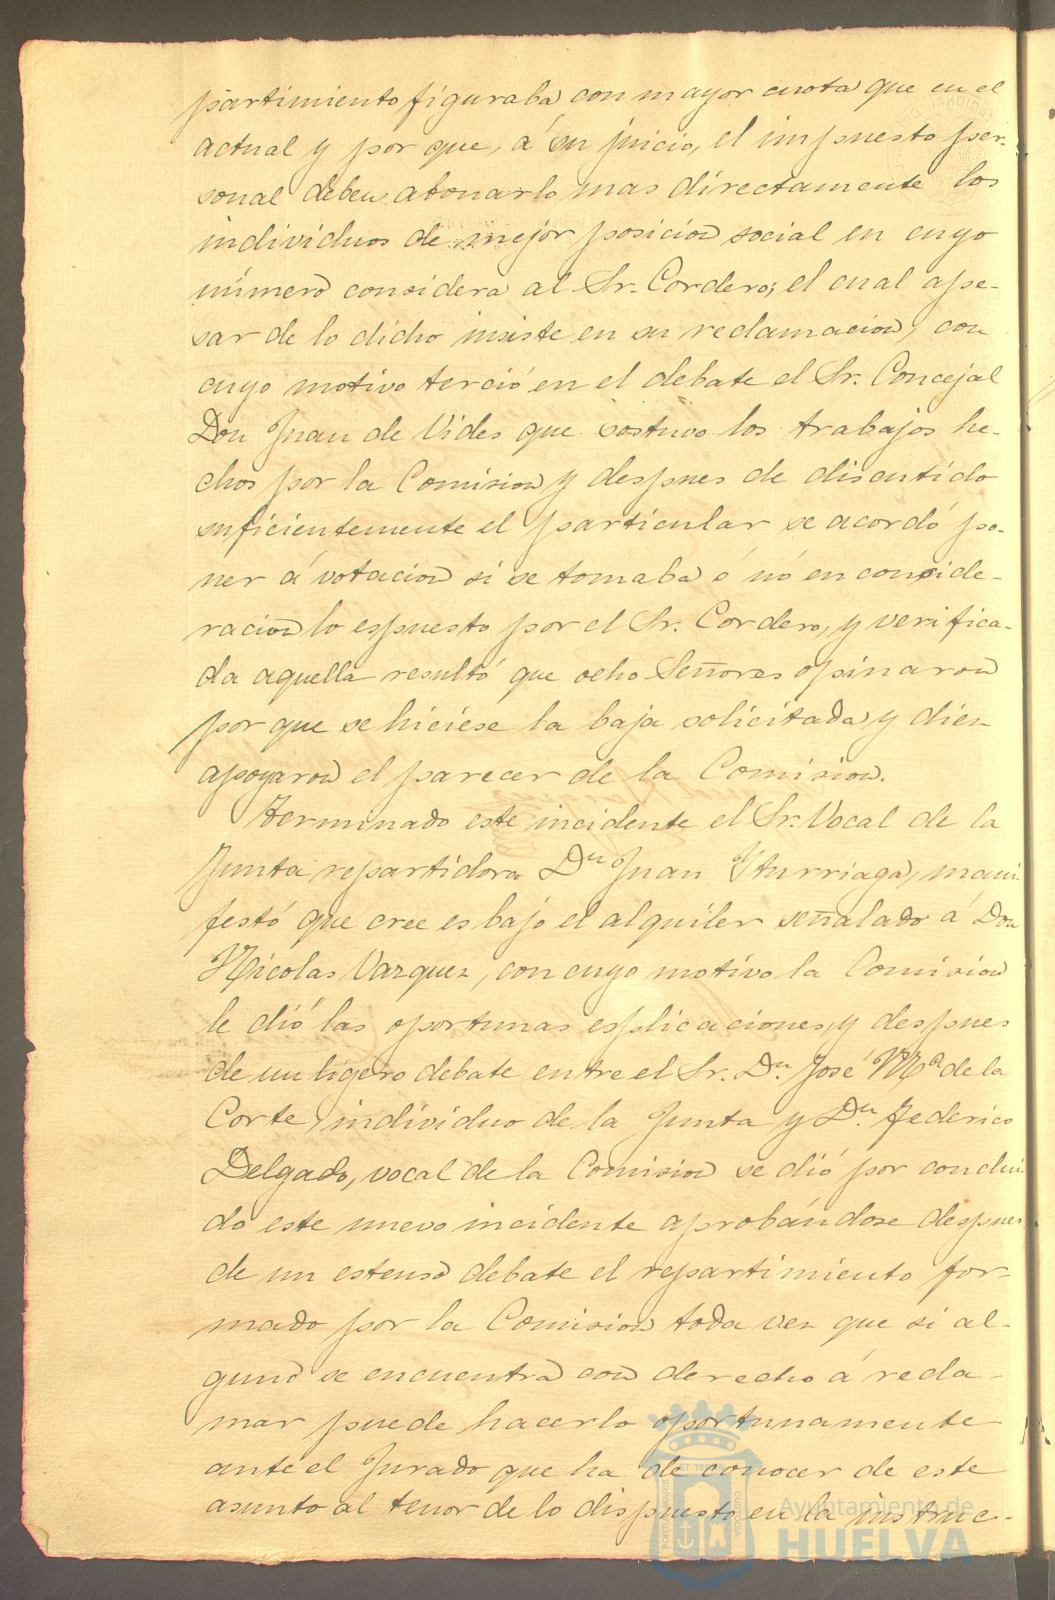 partimiento figuraba con mayor cuota que en el
actual y por que, á su juicio, el impuesto per-
sonal deben abonarlo mas directamente los
individuos de mejor posicion social en cuyo
número considera al Sr. Cordero; el cual ape-
sar de lo dicho insiste en su reclamacion, con
cuyo motivo terció en el debate el Sr. Concejal
Don Juan de Vides que sostuvo los trabajos he-
chos por la Comision y despues de discutido
suficientemente el particular se acordó po-
ner á votacion si se tomaba ó nó en conside-
racion lo espuesto por el Sr. Cordero, y verifica-
da aquella resultó que ocho Señores opinaron
por que se hiciese la baja solicitada y diez
apoyaron el parecer de la Comision.
Terminado este incidente el Sr. Vocal de la
Junta repartidora Dn Juan Yturriaga, mani-
festó que cree es bajo el alquiler señalado á Don
Nicolas Vazquez, con cuyo motivo la Comision
le dió las oportunas esplicaciones, y despues
de un ligero debate entre el Sr. Dn. José Mª de la
Corte, individuo de la Junta y Dn. Federico
Delgado, vocal de la Comision se dió por conclui
do este nuevo incidente aprobándose despues
de un estenso debate el repartimiento for-
mado por la Comision toda vez que si al-
guno se encuentra con derecho á recla-
mar puede hacerlo oportunamente
ante el Jurado que ha de conocer de este
asunto al tenor de lo dispuesto en la instruc-
Ayuntamiento de
HUELVA